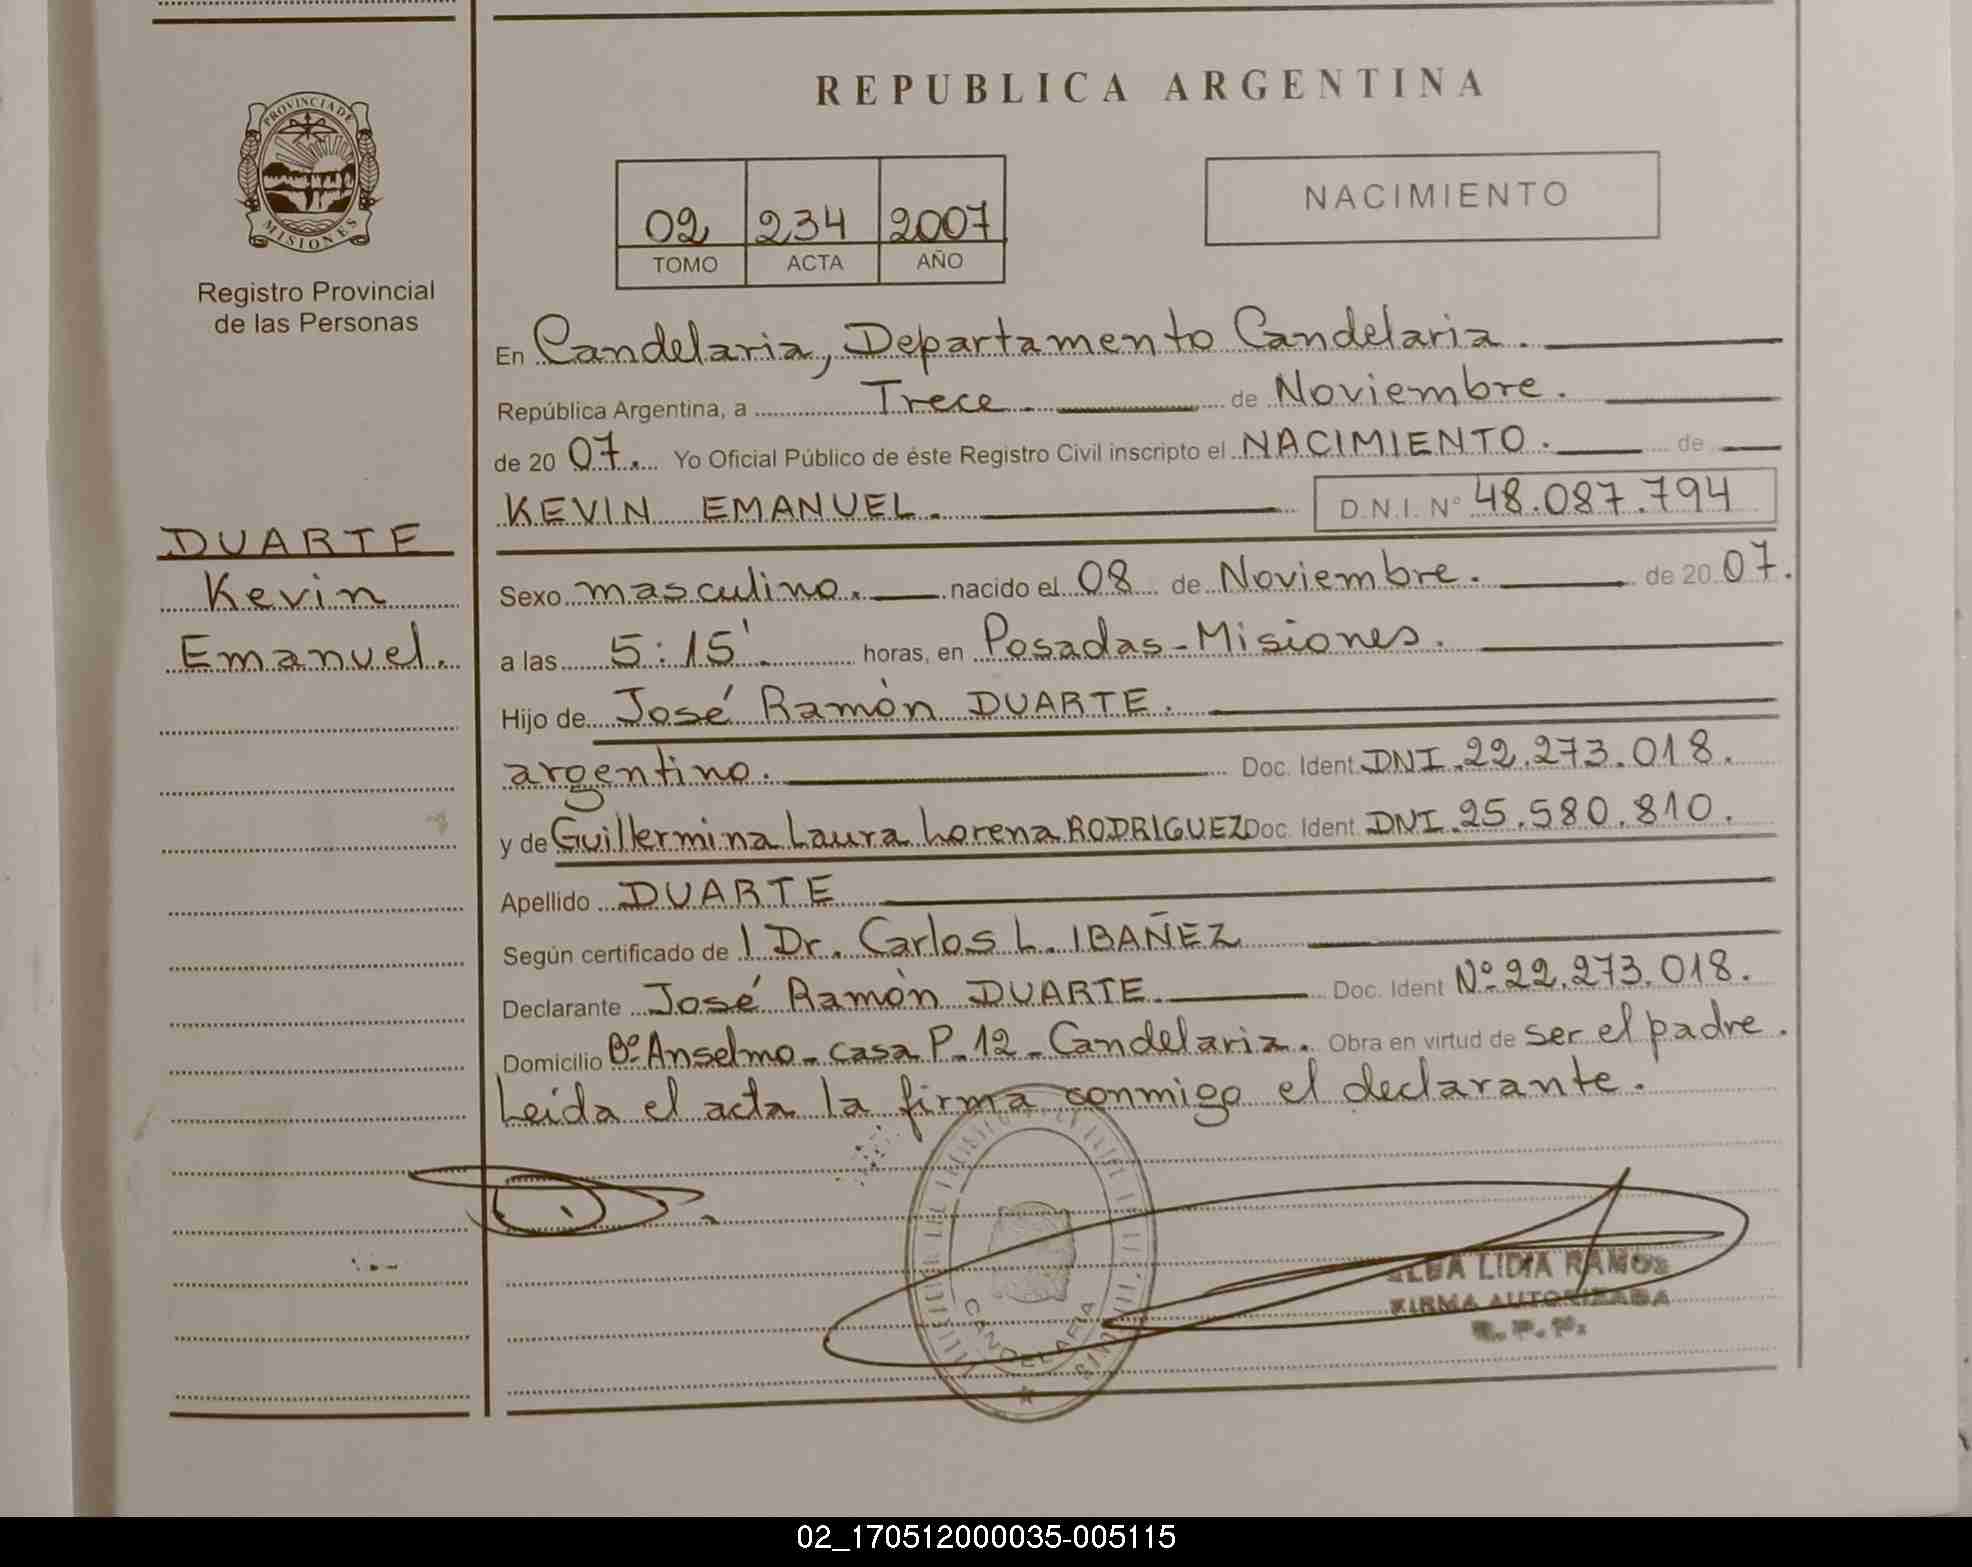 REPUBLICA ARGENTINA
PROVINCIA DE
MISIONES
Registro Provincial
de las Personas
02 234 2007
TOMO ACTA AÑO
NACIMIENTO
En Candelaria, Departamento Candelaria.
República Argentina, a Trece. de Noviembre.
de 20 07. Yo Oficial Público de éste Registro Civil inscripto el NACIMIENTO. de
KEVIN EMANUEL. D.N.I. Nº 48.087.794
DUARTE
Kevin
Emanuel.
Sexo masculino. nacido el 08 de Noviembre. de 20 07.
a las 5:15'. horas, en Posadas-Misiones.
Hijo de José Ramón DUARTE.
argentino. Doc. Ident. DNI.22.273.018.
y de Guillermina Laura Lorena RODRIGUEZ Doc. Ident. DNI.25.580.810.
Apellido DUARTE
Según certificado de l Dr. Carlos L. IBAÑEZ
Declarante José Ramón DUARTE. Doc. Ident Nº 22.273.018.
Domicilio Bº Anselmo-casa P-12-Candelaria. Obra en virtud de ser el padre.
Leída el acta la firma conmigo el declarante.
CANDELARIA
LIDIA RAMOS
FIRMA AUTORIZADA
02_170512000035-005115